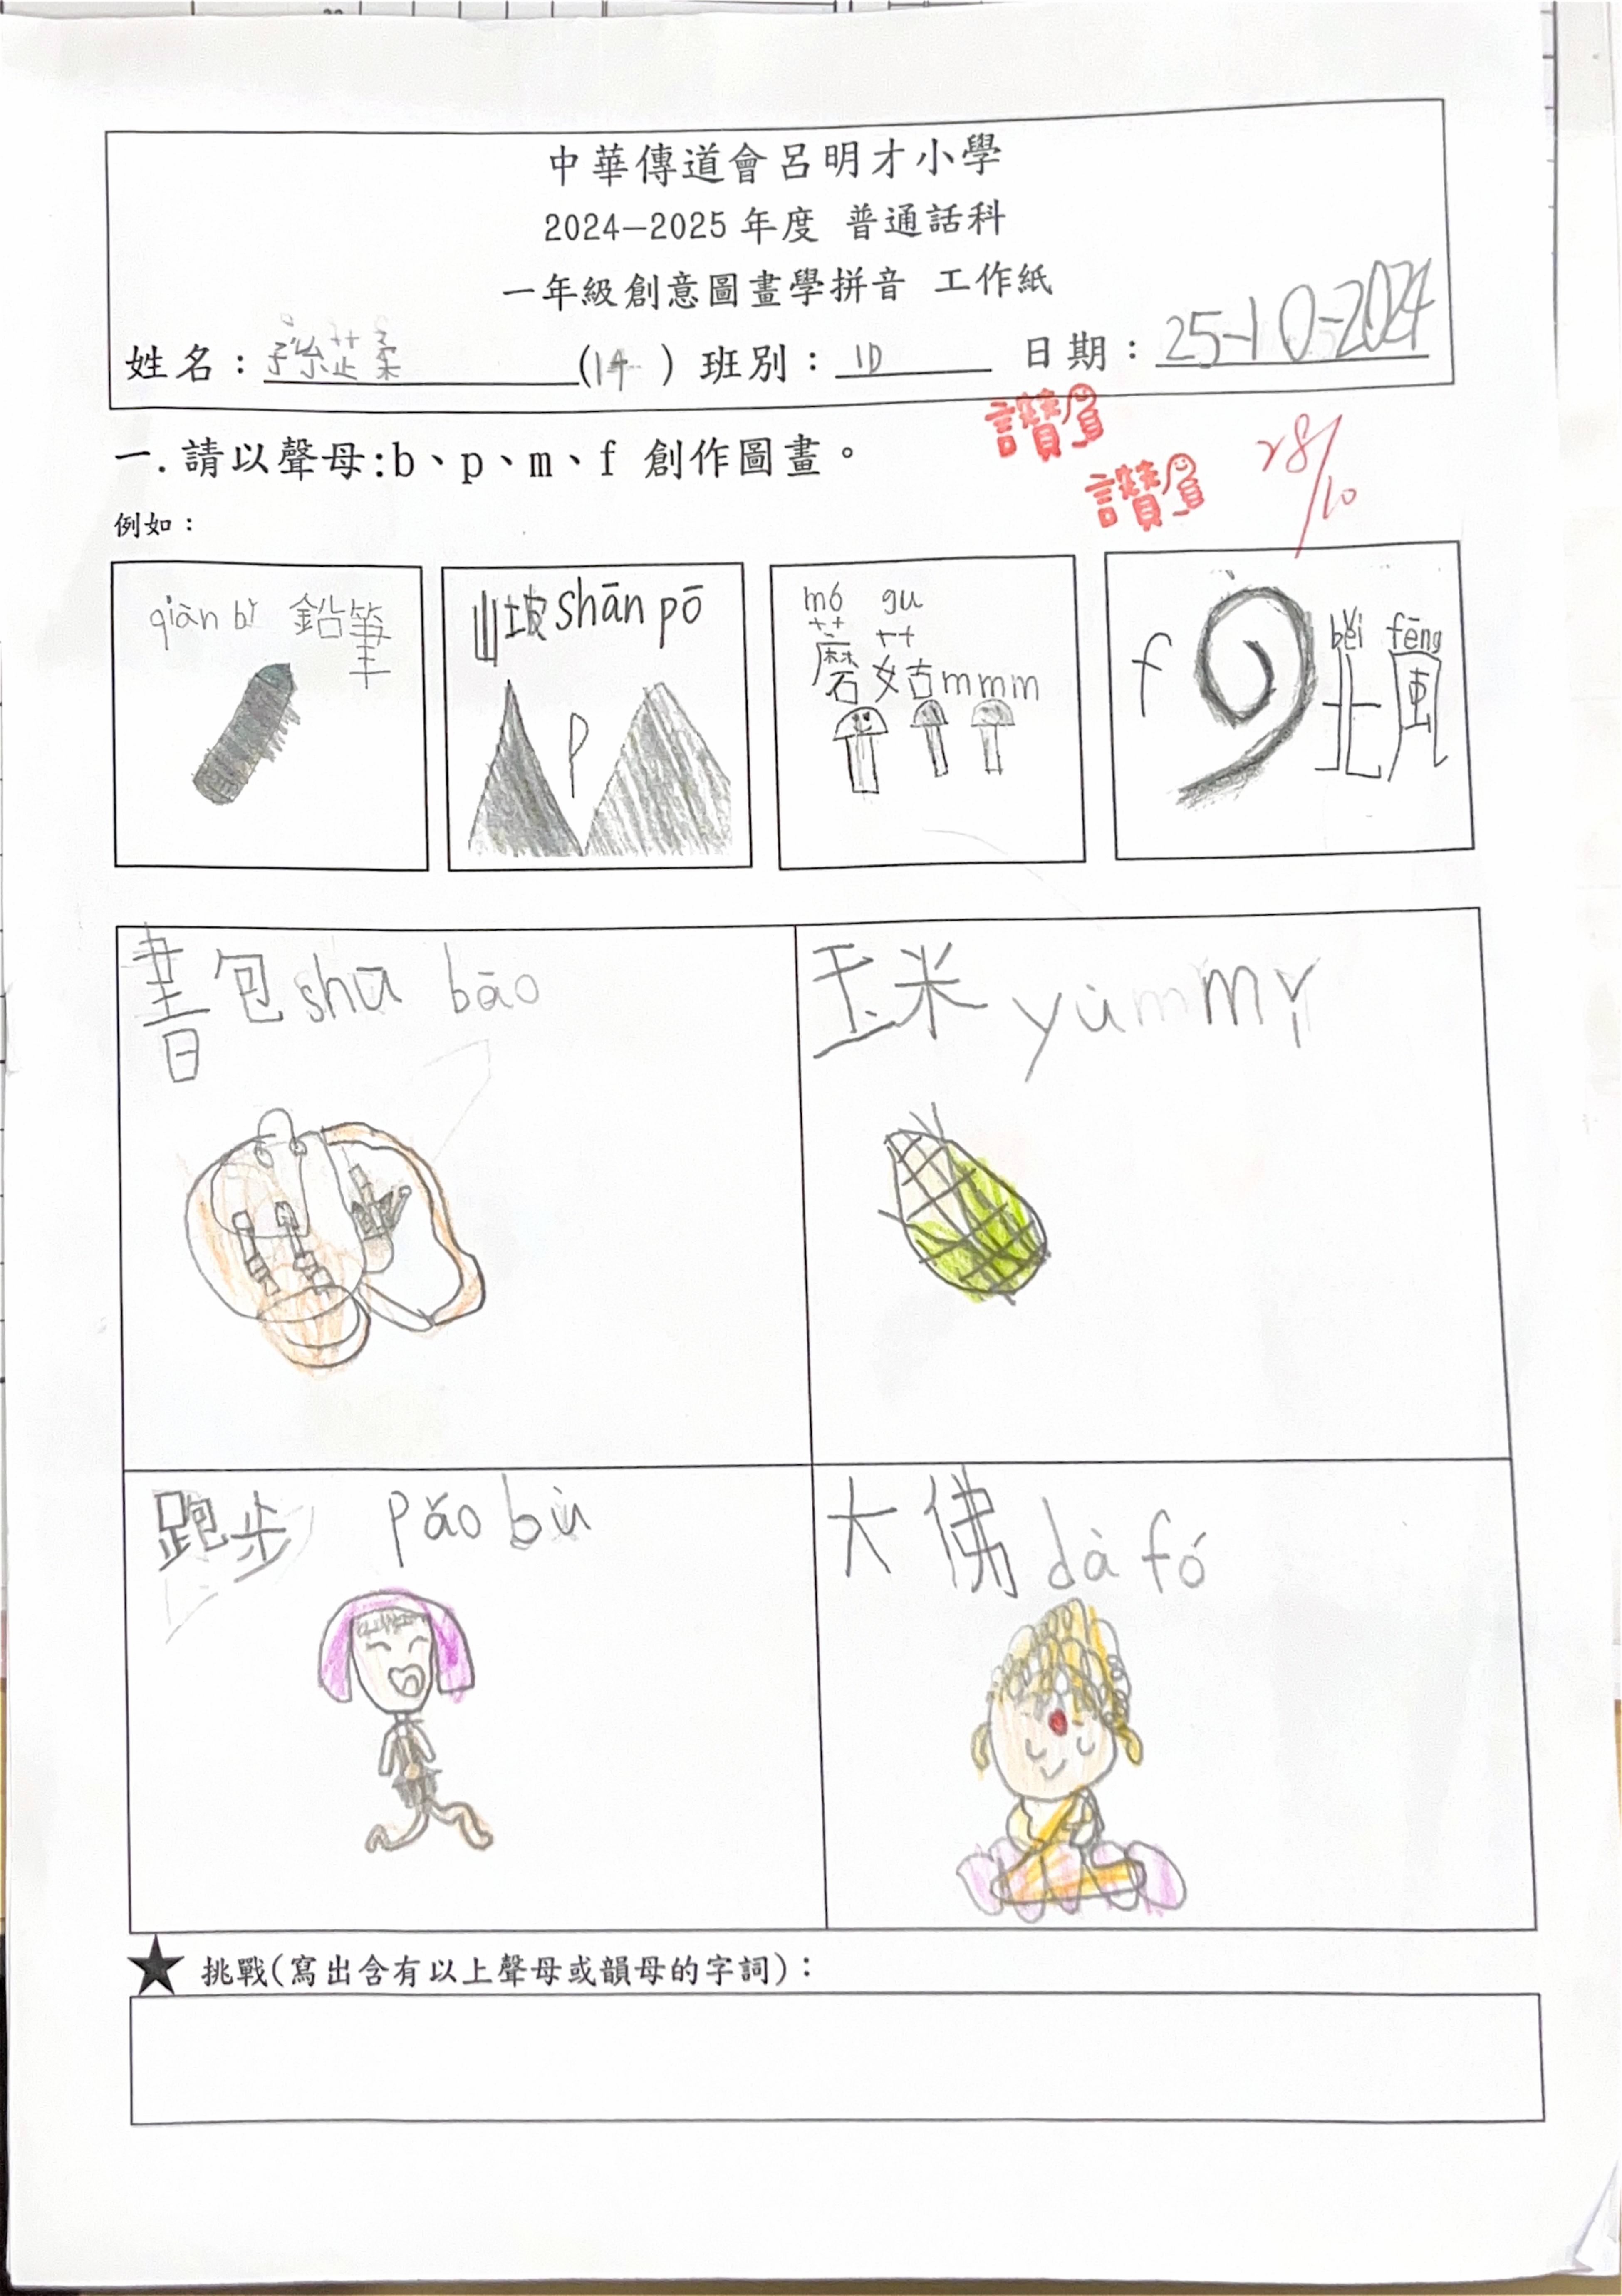 中華傳道會呂明才小學
2024—2025 年度 普通話科
一年級創意圖畫學拼音 工作紙
姓名：孫芷柔 (14) 班別：1D 日期：25-10-2024
一.請以聲母:b、p、m、f 創作圖畫。
讚
讚
28/10
例如：
qiān bǐ 鉛筆
山坡 shān pō
p
mó gu
蘑菇 mmm
f
běi fēng
北風
書包 shū bāo
玉米 yùmmǐ
跑步 pǎo bù
大佛 dà fó
★ 挑戰(寫出含有以上聲母或韻母的字詞)：